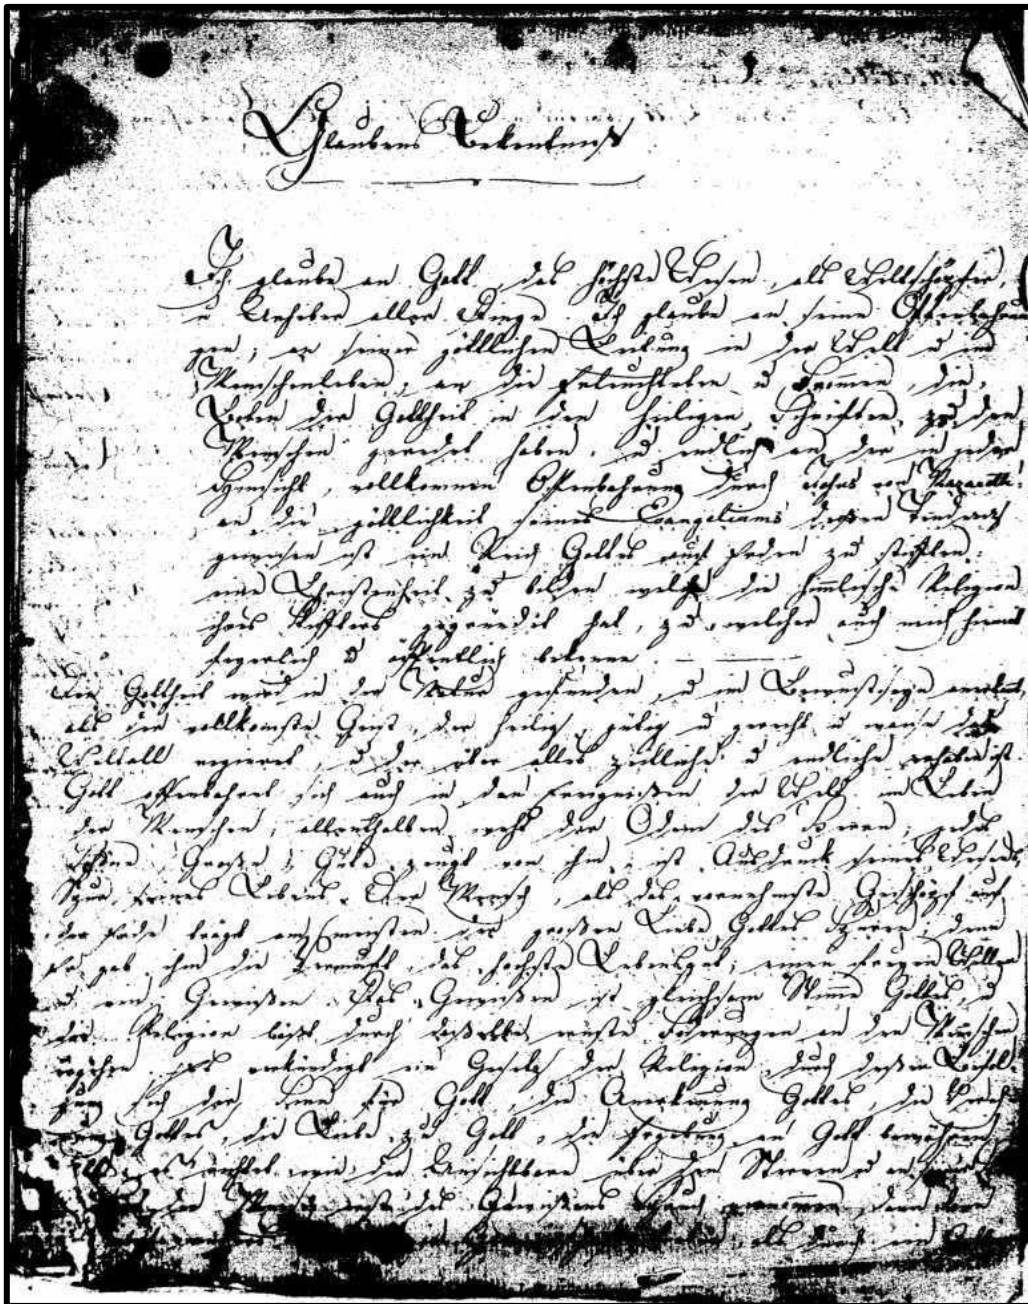 Glaubens Bekentniß
Ich glaube an Gott, das höchste Wesen, als Weltschöpfer,
u Urheber aller Dinge. Ich glaube an seine Offenbahrun
gen; an seiner göttlichen Leitung in der Welt u im
Menschenleben; an die Erleuchteten u Frommen, die,
Boten der Gottheit in den heiligen Schriften, zu den
Menschen geredet haben, u endlich an der in jeder
Hinsicht, vollkommen Offenbahrung durch Jesus von Nazareth:
an die göttlichkeit seines Evangeliums deßen
gewesen ist ein Reich Gottes auf Erden zu stiften:
eine Christenheit zu bilden welche die himlische Religion
ihres Stifters gegründet hat, zu welcher auch mich hiermit
feyerlich u öffentlich bekenne.
Die Gottheit wird in der Natur gefunden, u im Bewustseyn
als der vollkomste Geist, der heilig, gütig u gerecht u weise das
Weltall regieret, u der über alles zeitliche u endliche erhaben ist.
Gott offenbahret sich auch in den Ereignißen der Welt im Leben
der Menschen; allenthalben weht der Odem des Herrn; jedes
Schöne, Große, Gute zeugt von ihm, ist Ausdruck seines Wesens,
Spur seines Lebens. Der Mensch, als das vornehmste Geschöpf auf
der Erde trägt am meisten der großen Liebe Gottes Spuren; denn
Er gab ihm die Vernunft, das höchste Lebensgut; einen freyen Willen
u ein Gewißen. Das Gewißen ist gleichsam Stimme Gottes, u
die Religion läßt durch daßelbe ernste Foderungen an den Menschen
ergehen es verkündigt ein Gesetz der Religion, durch deßen Befol-
gung sich der Sinn für Gott, die Anerkenung Gottes, die
Gottes, die Liebe zu Gott, die Ergebung an Gott bewähren
es richtet wie der Unsichtbare über den Sternen u an
der Mensch des Gewißens denn
als durch